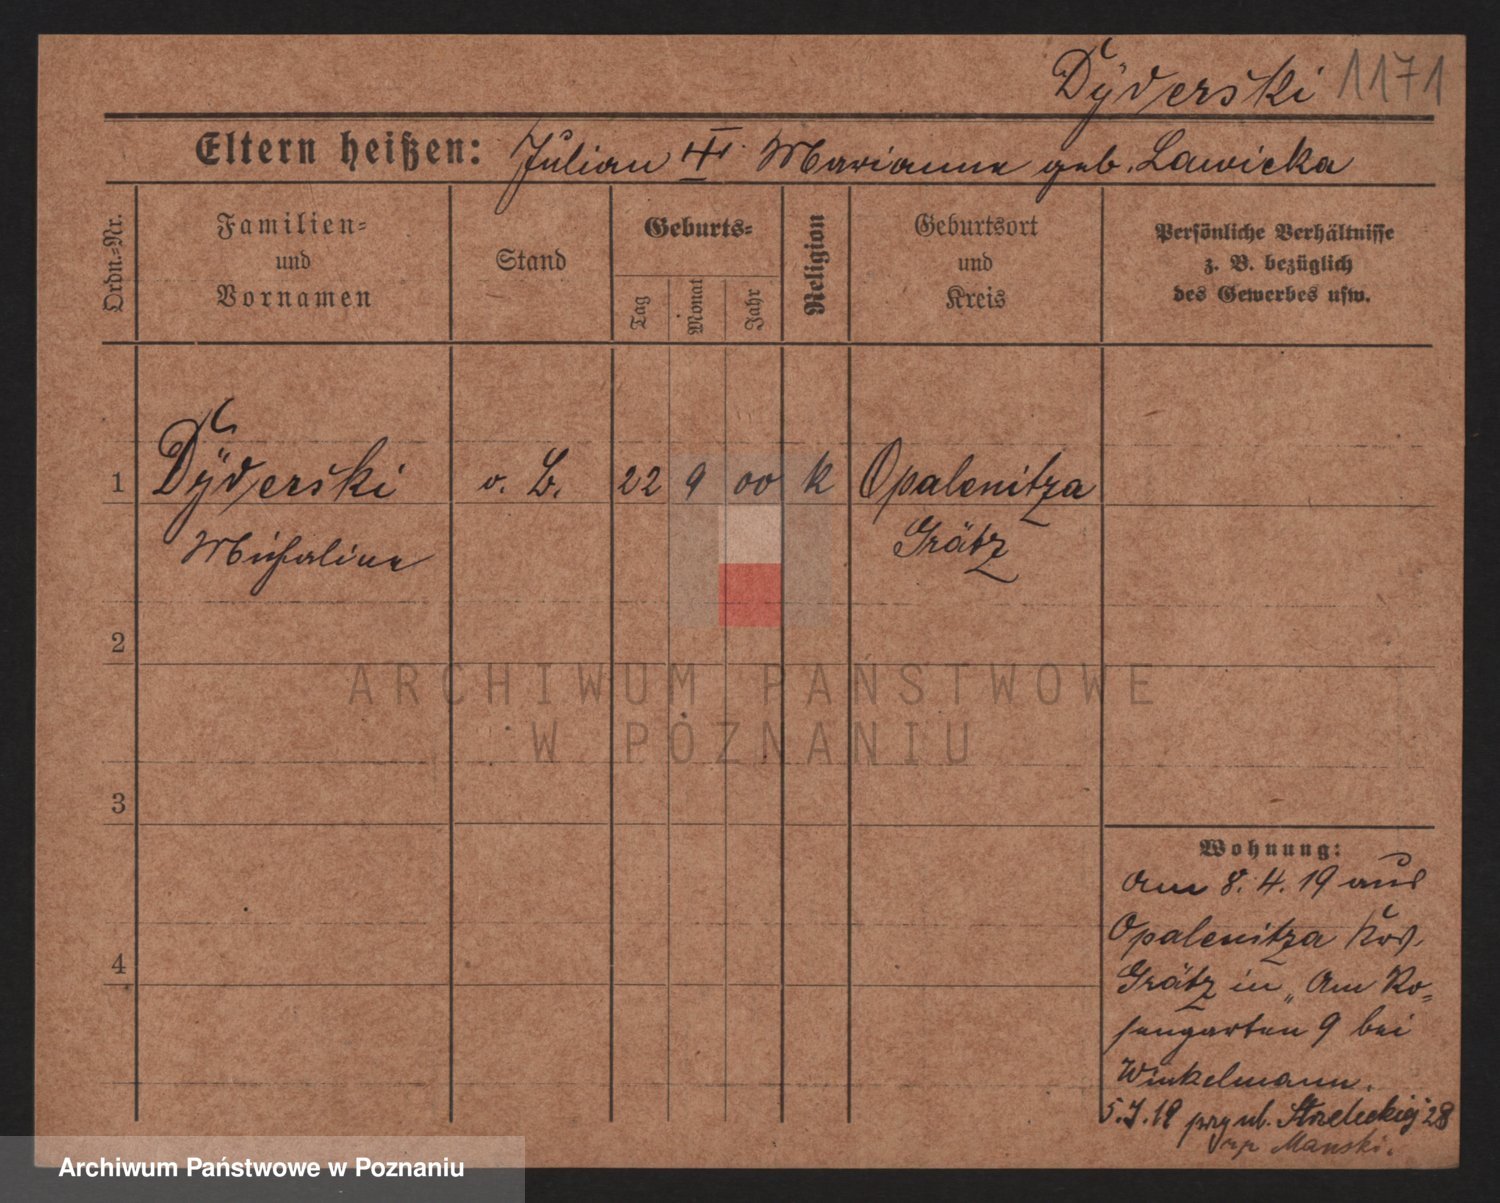 Dÿderski 1171
Eltern heißen: Julian Marianne geb. Lawicka
Ordn.-Nr.
Familien-
und
Vornamen
Stand
Geburts-
Tag
Monat
Jahr
Religion
Geburtsort
und
Kreis
Persönliche Verhältnisse
z. B. bezüglich
des Gewerbes usw.
1 Dÿderski o. B. 22 9 00 k Opalenitza
Michaline Grätz
2
ARCHIWUM PAŃSTWOWE
W POZNANIU
3
Wohnung:
Am 8. 4. 19 aus
Opalenitza
4
Grätz in „Am Ro-
sengarten 9 bei
Winkelmann.
5.7.19 przy ul. Strzeleckiej 28
Manski.
Archiwum Państwowe w Poznaniu